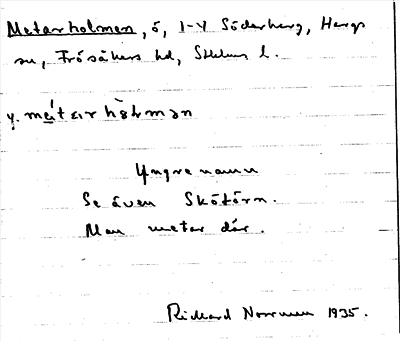 Metarholmen, ö, 1-Y Söderberg, Hargs
sn, Frösåkers hd, Sthlms l.
y. me̍tɛr hòlmən
Yngre namn
Se även Skötörn.
Man metar där.
Rickard Norrman 1935.